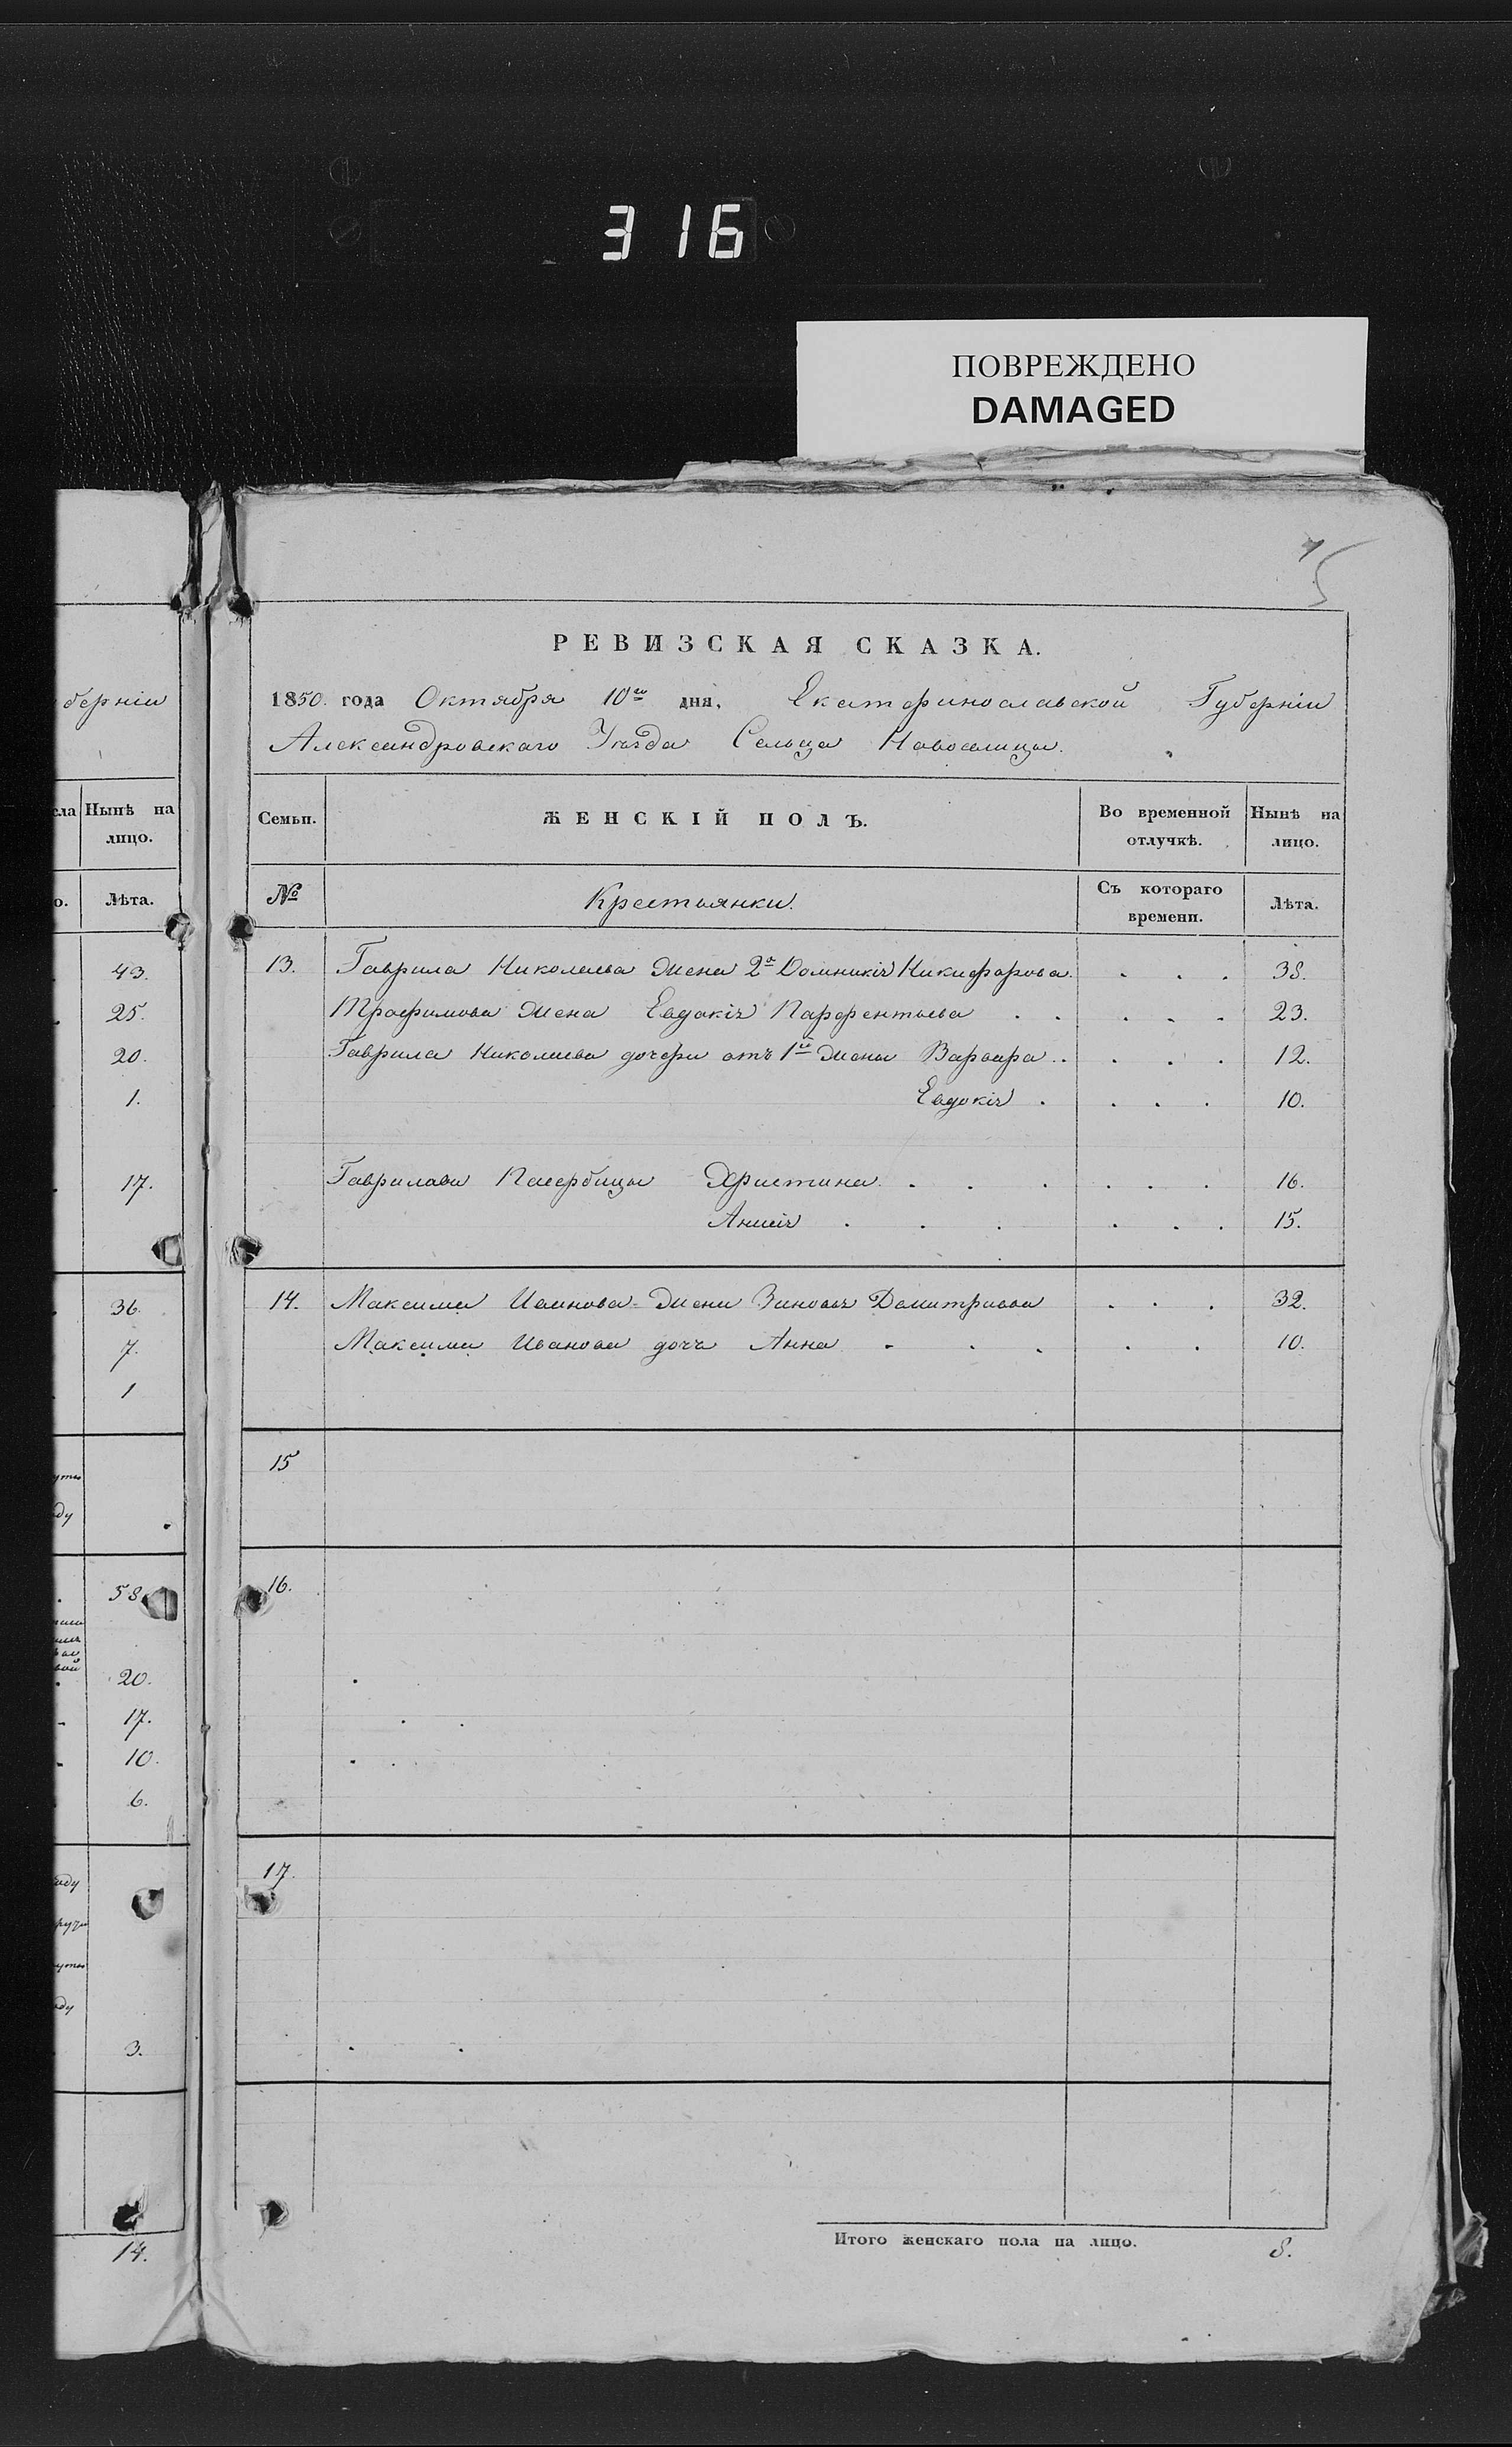 316
ПОВРЕЖДЕНО
DAMAGED
5
РЕВИЗСКАЯ СКАЗКА.
1850. года Октября 10го дня, Екатеринославской Губерніи
Александровскаго Уѣзда Сельца Новоселицы.
берніи
Нынѣ на
лицо.
Лѣта.
43.
25.
20.
1.
17.
36.
7.
1
58
20.
17.
10.
6.
3.
14.
Семьи. ЖЕНСКІЙ ПОЛЪ. Во временной отлучкѣ. Нынѣ на лицо.
№ Крестьянки. Съ котораго времени. Лѣта.
13. Гаврила Николаева жена 2я Домникія Никифорова. . . . 38.
Трофимова жена Евдокія Парфентьева . . . . . 23.
Гаврила Николаева дочери отъ 1й жены Варвара . . . . . 12.
Евдокія . . . . 10.
Гаврилови Пасербицы Христина . . . . . . 16.
Анисія . . . . . . 15.
14. Максима Иванова жена Зиновья Дмитриева . . . 32.
Максима Иванова дочь Анна . . . . . 10.
15
16.
17.
Итого женскаго пола на лицо. 8.